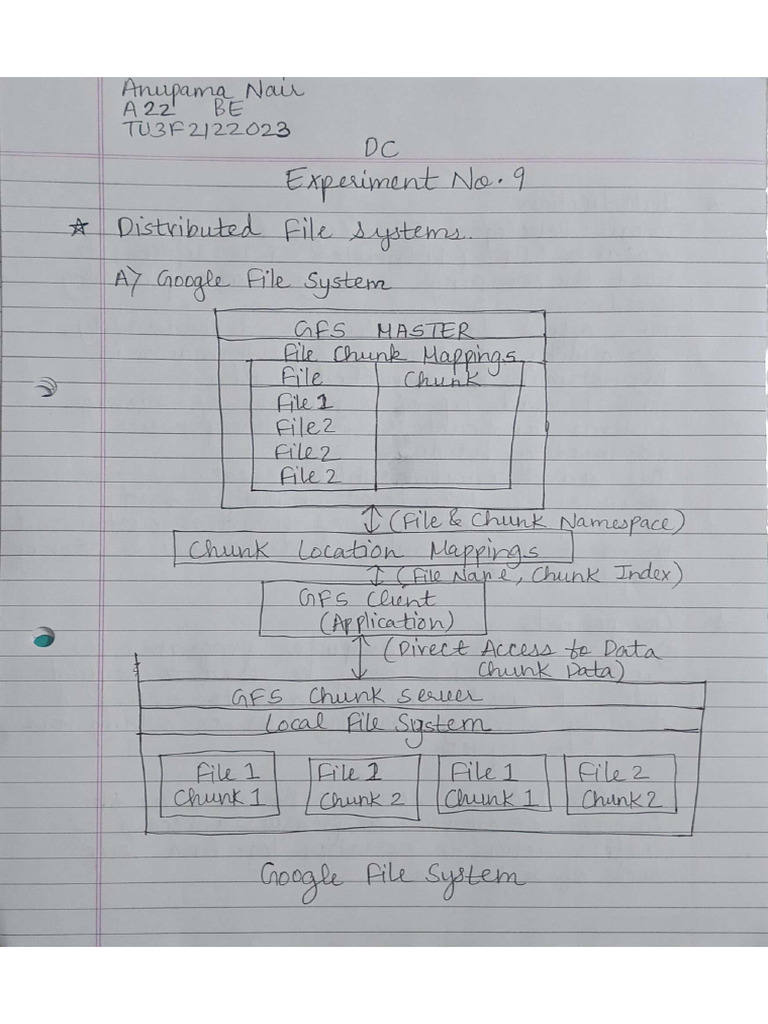 Anupama Nair
A22 BE
TU3F2122023
DC
Experiment No. 9
☆ Distributed File Systems.
A) Google File System
GFS MASTER
File Chunk Mappings
File Chunk
File 1
File 2
File 2
File 2
↕ (File & Chunk Namespace)
Chunk Location Mappings
↕ (File Name, Chunk Index)
GFS Client
(Application)
↕ (Direct Access to Data
Chunk Data)
GFS Chunk Server
Local File System
File 1 File 1 File 1 File 2
Chunk 1 Chunk 2 Chunk 1 Chunk 2
Google File System